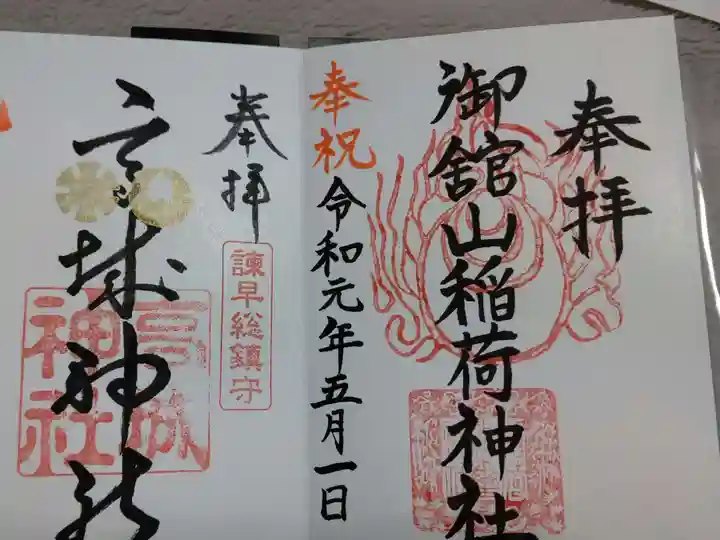 奉拝
御舘山稲荷神社
奉祝
令和元年五月一日
奉拝
諫早総鎮守
高城神社
高城神社